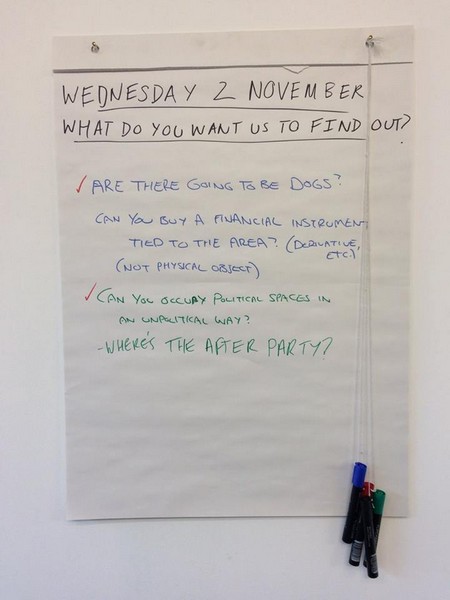 WEDNESDAY 2 NOVEMBER
WHAT DO YOU WANT US TO FIND OUT?
✓ ARE THERE GOING TO BE DOGS?
CAN YOU BUY A FINANCIAL INSTRUMENT
TIED TO THE AREA? (DERIVATIVE,
ETC.)
(NOT PHYSICAL OBJECT)
✓ CAN YOU OCCUPY POLITICAL SPACES IN
AN UNPOLITICAL WAY?
-WHERE'S THE AFTER PARTY?